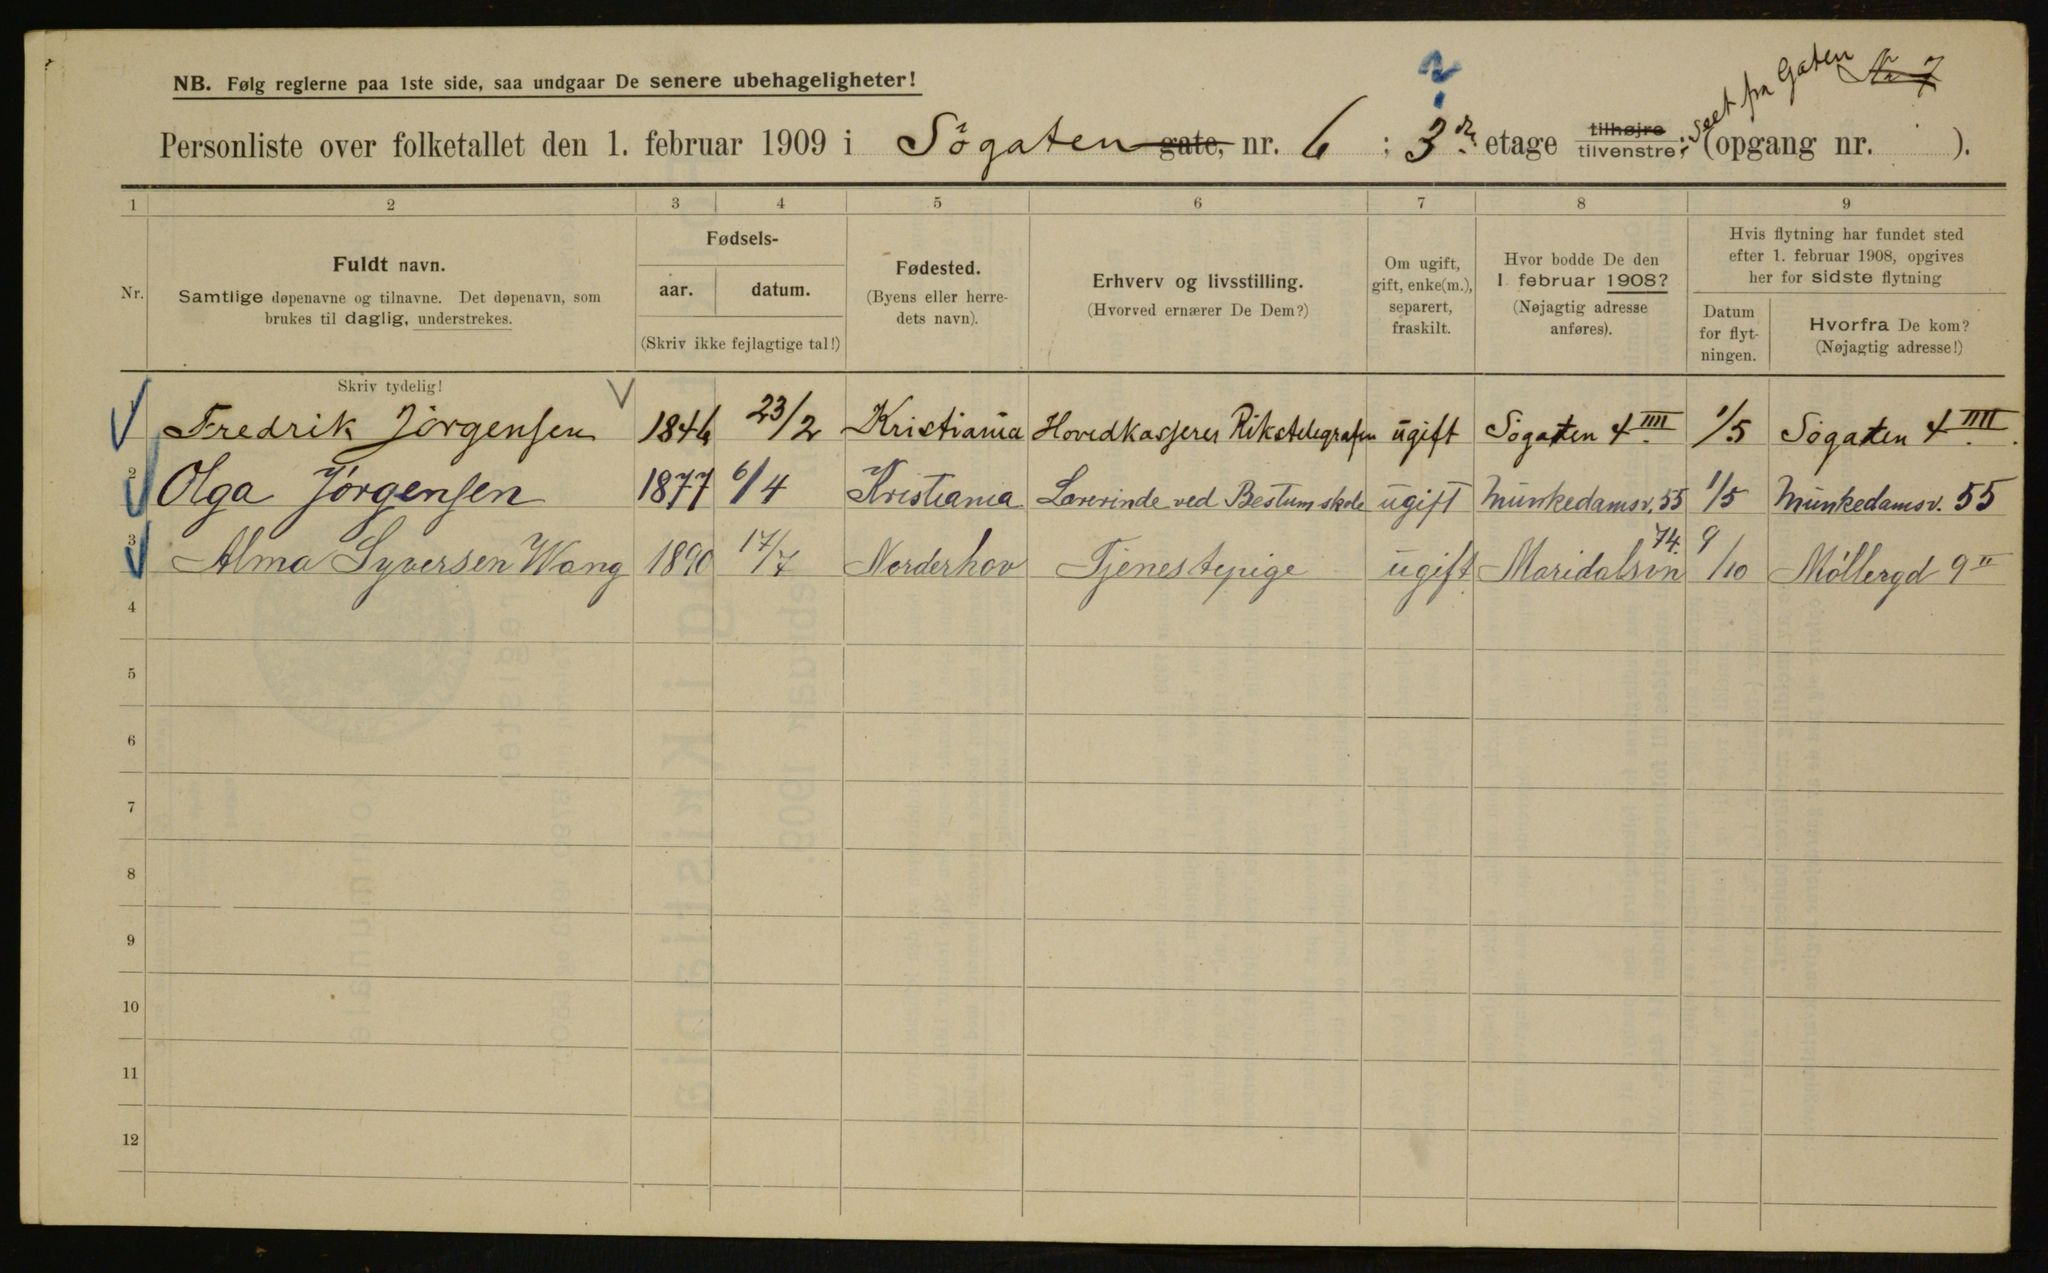 NB. Følg reglerne paa 1ste side, saa undgaar De senere ubehageligheter!
seet fra Gaten No 7
2
Personliste over folketallet den 1. februar 1909 i Søgaten gate, nr. 6 ; 3die etage tilhøjre tilvenstre; (opgang nr. ).
1 2 3 4 5 6 7 8 9
Nr.
Fuldt navn.
Samtlige døpenavne og tilnavne. Det døpenavn, som
brukes til daglig, understrekes.
Fødsels-
aar. datum.
(Skriv ikke fejlagtige tal!)
Fødested.
(Byens eller herre-
dets navn).
Erhverv og livsstilling.
(Hvorved ernærer De Dem?)
Om ugift,
gift, enke(m.),
separert,
fraskilt.
Hvor bodde De den
1 februar 1908?
(Nøjagtig adresse
anføres).
Hvis flytning har fundet sted
efter 1. februar 1908, opgives
her for sidste flytning
Datum
for flyt-
ningen.
Hvorfra De kom?
(Nøjagtig adresse!)
Skriv tydelig!
1 Fredrik Jørgensen 1846 23/2 Kristiania Hovedkasserer Rikstelegrafen ugift Søgaten 4 IIII 1/5 Søgaten 4 IIII.
2 Olga Jørgensen 1877 6/4 Kristiania Lærerinde ved Bestum skole ugift Munkedamsv. 55 1/5 Munkedamsv. 55
3 Alma Syversen Wang 1890 17/7 Norderhov Tjenestepige ugift Maridalsvn 74. 9/10 Møllergd 9 II
4
5
6
7
8
9
10
11
12